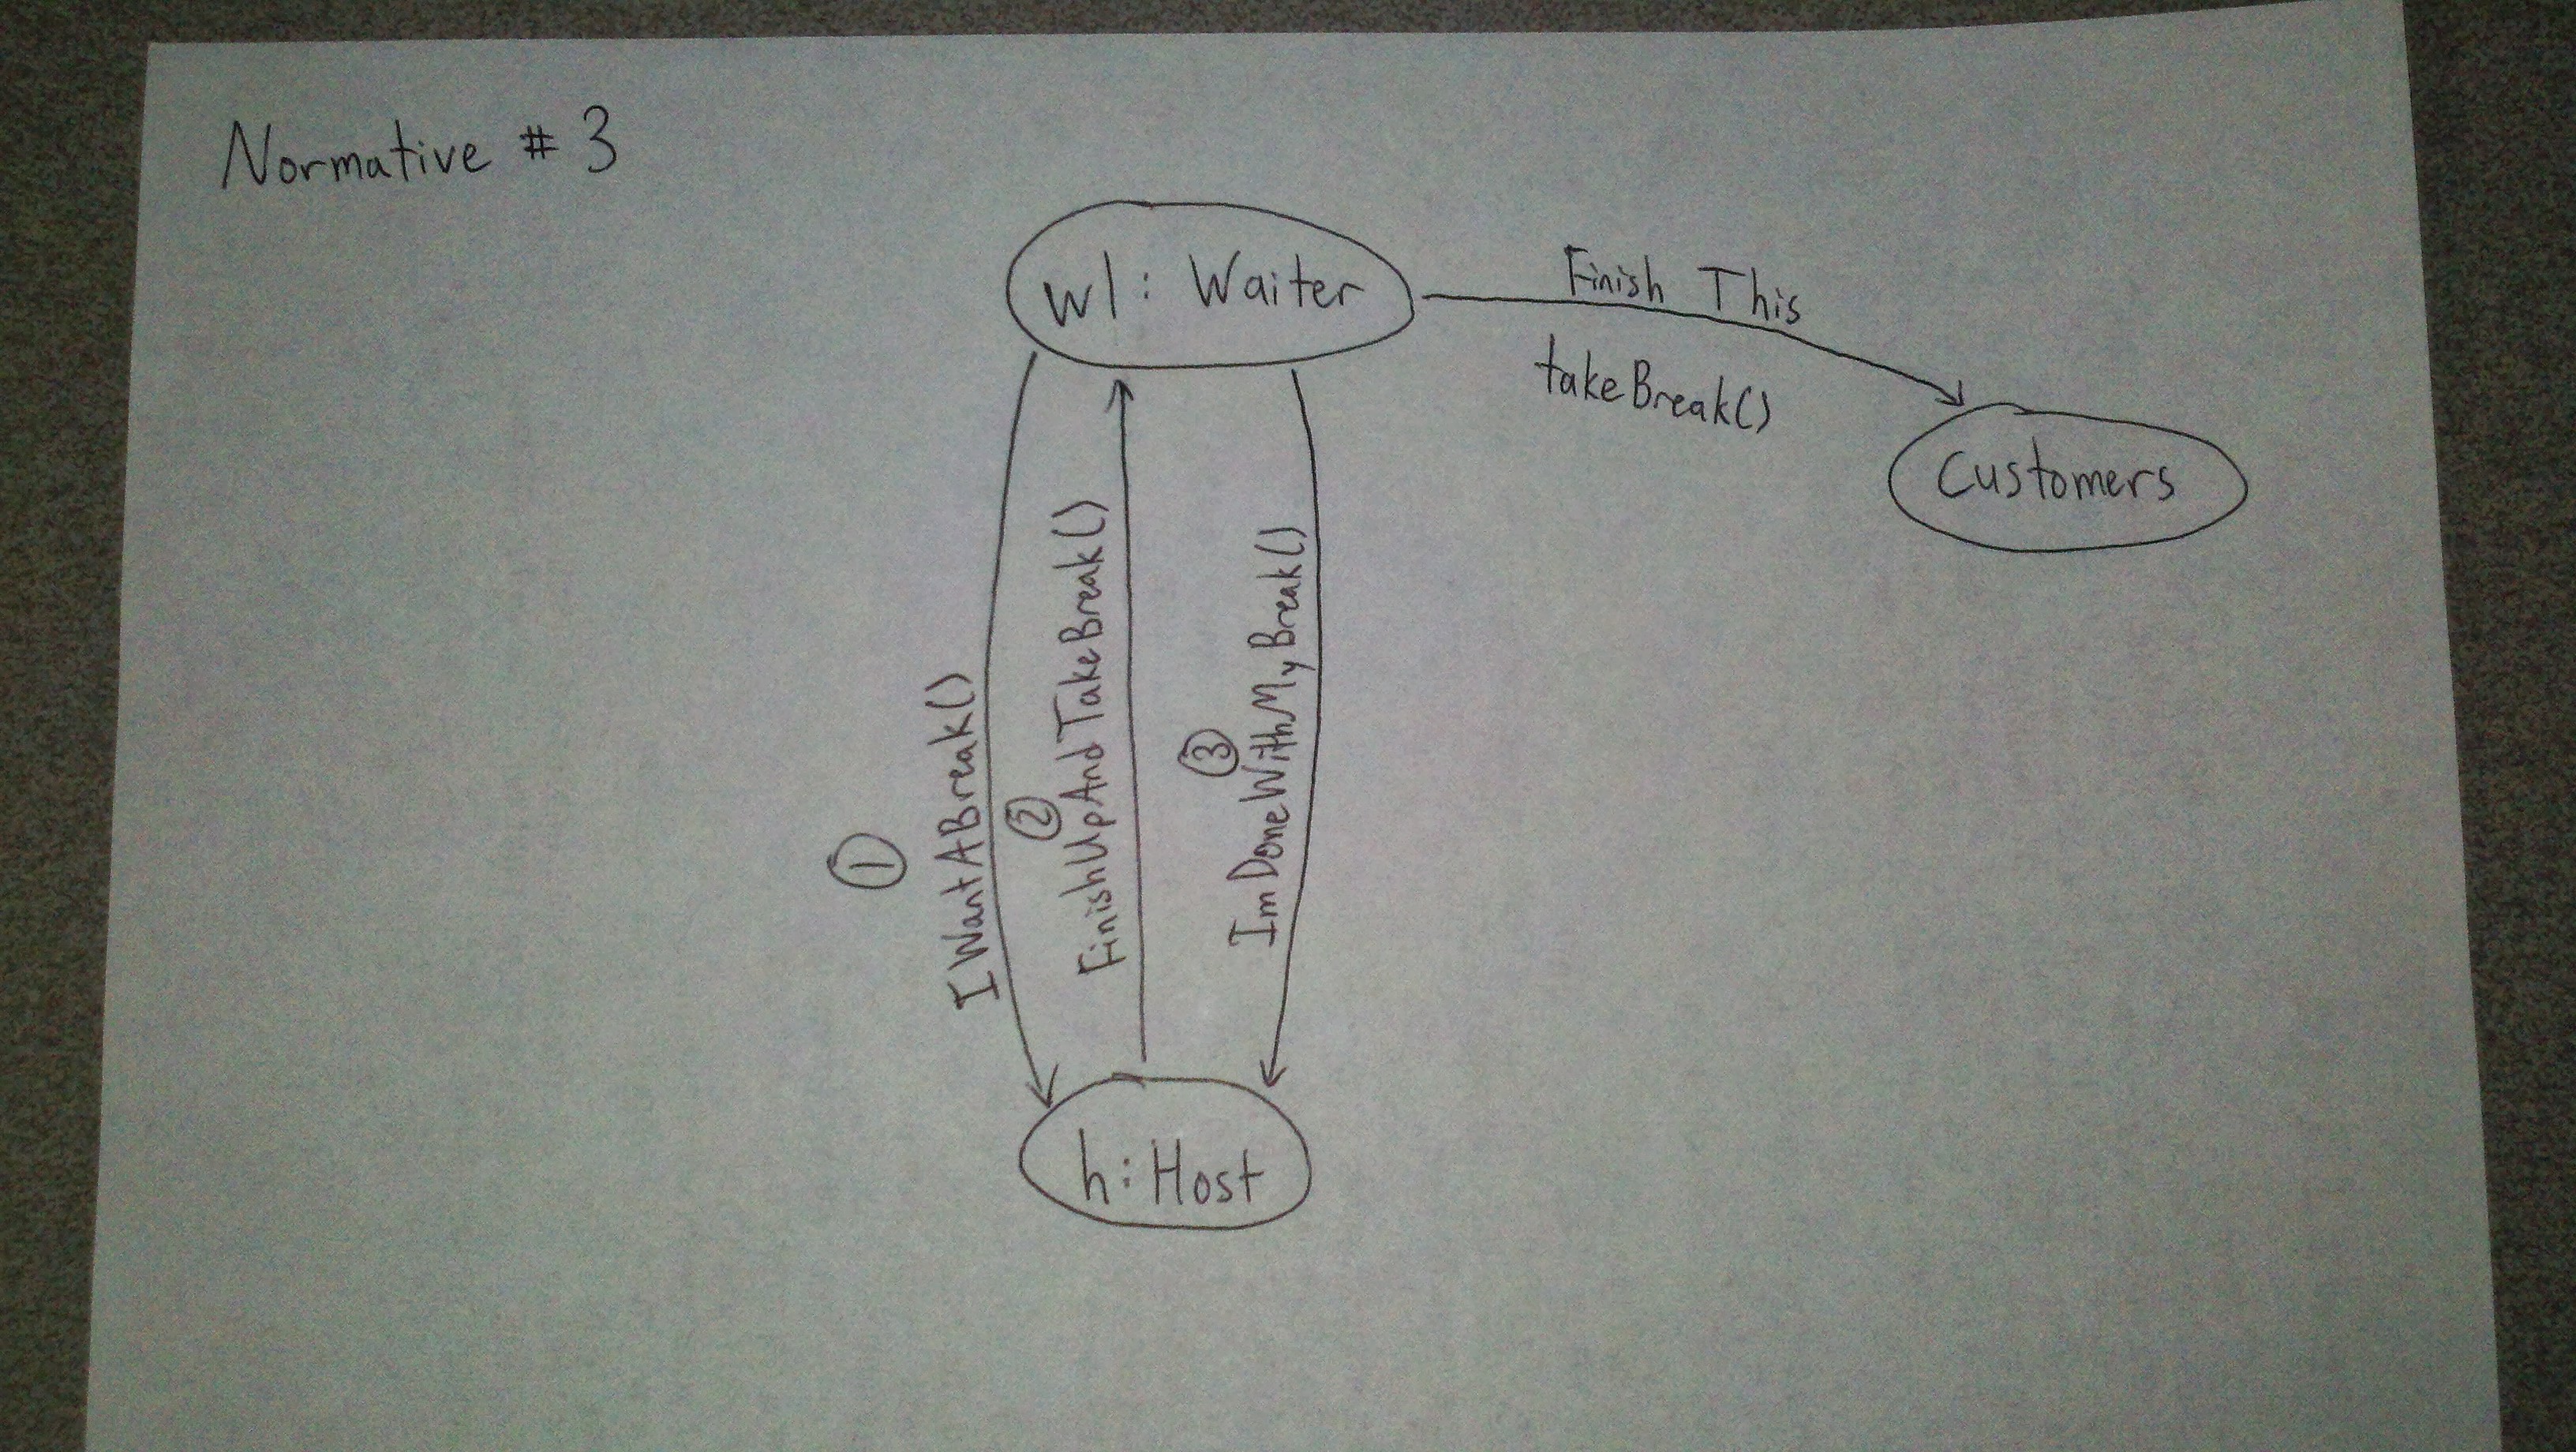 Normative # 3
w1: Waiter
Finish This
takeBreak()
Customers
1
IWantABreak()
2
FinishUpAndTakeBreak()
3
ImDoneWithMyBreak()
h: Host